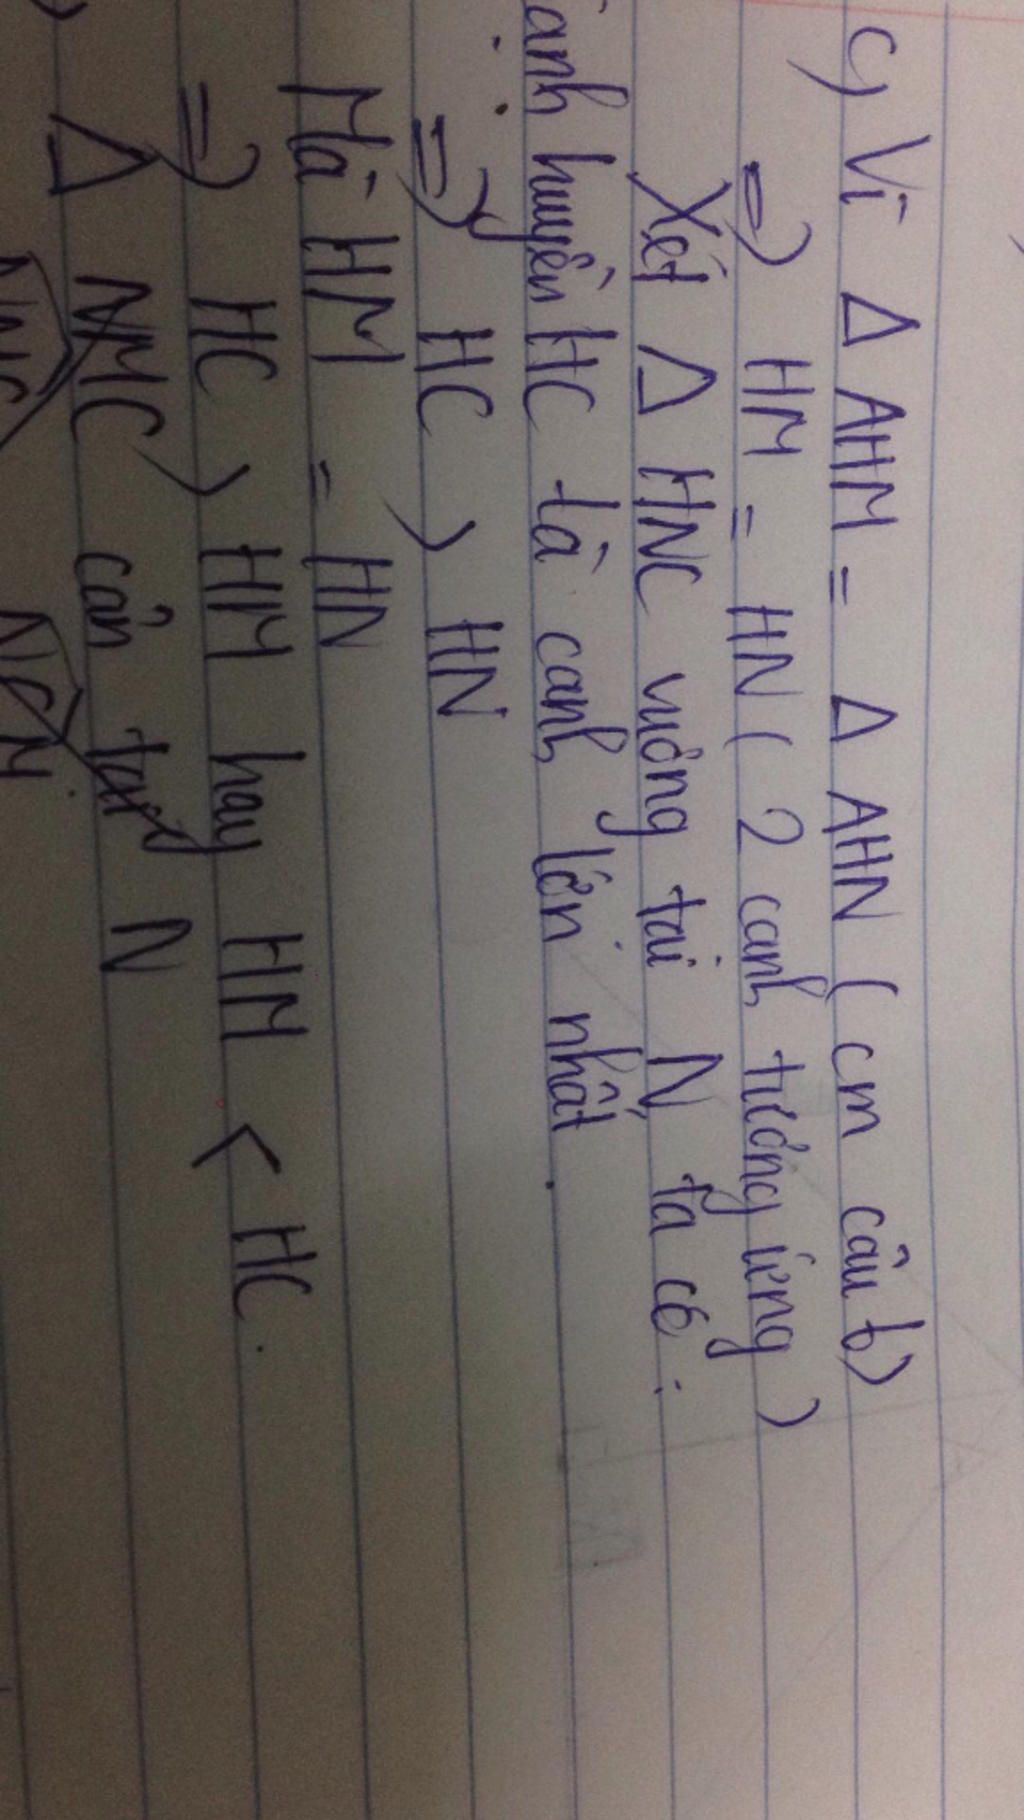 c) Vì Δ AHM = Δ AHN ( cm câu b)
=> HM = HN ( 2 canh tương ứng )
Xét Δ HNC vuông tại N, ta có :
canh huyền HC là canh lớn nhất .
=> HC > HN
Mà HM = HN
=> HC > HM hay HM < HC .
Δ NMC cân tại N